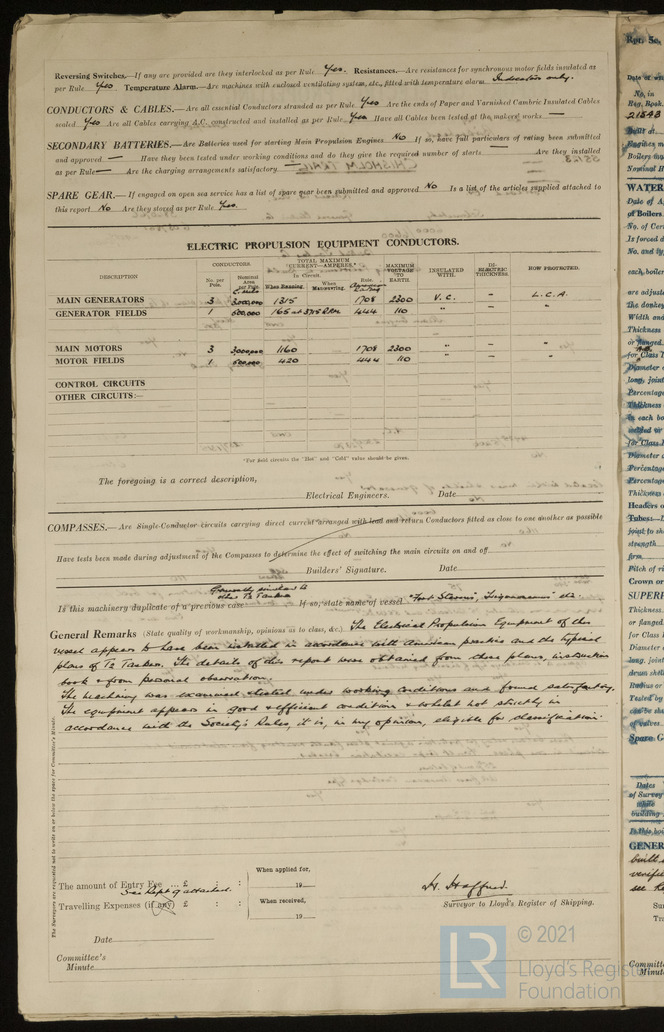 Reversing Switches.—If any are provided are they interlocked as per Rule Yes. Resistances.—Are resistances for synchronous motor fields insulated as
per Rule Yes Temperature Alarm.—Are machines with enclosed ventilating system, etc., fitted with temperature alarm Indicators only.
CONDUCTORS & CABLES.—Are all essential Conductors stranded as per Rule Yes Are the ends of Paper and Varnished Cambric Insulated Cables
sealed Yes Are all Cables carrying A.C. constructed and installed as per Rule Yes Have all Cables been tested at the makers' works —
SECONDARY BATTERIES.—Are Batteries used for starting Main Propulsion Engines No If so, have full particulars of rating been submitted
and approved — Have they been tested under working conditions and do they give the required number of starts — Are they installed
as per Rule — Are the charging arrangements satisfactory —
SPARE GEAR.—If engaged on open sea service has a list of spare gear been submitted and approved No Is a list of the articles supplied attached to
this report No Are they stored as per Rule Yes.
ELECTRIC PROPULSION EQUIPMENT CONDUCTORS.
DESCRIPTION CONDUCTORS. No. per Pole. Nominal Area per Pole. TOTAL MAXIMUM CURRENT—AMPERES* In Circuit. When Running. When Manœuvring. Rule. MAXIMUM VOLTAGE TO EARTH. INSULATED WITH. DI-ELECTRIC THICKNESS. HOW PROTECTED.
MAIN GENERATORS 3 3,000,000 1315 1708 2300 V.C. – L.C.A.
GENERATOR FIELDS 1 600,000 165 at 3715 R.P.M. 444 110 " – "
MAIN MOTORS 3 3,000,000 1160 1708 2300 " – "
MOTOR FIELDS 1 600,000 420 444 110 " – "
CONTROL CIRCUITS
OTHER CIRCUITS:—
*For field circuits the "Hot" and "Cold" value should be given.
The foregoing is a correct description,
Electrical Engineers. Date
COMPASSES.—Are Single-Conductor circuits carrying direct current arranged with lead and return Conductors fitted as close to one another as possible
Have tests been made during adjustment of the Compasses to determine the effect of switching the main circuits on and off
Builders' Signature. Date
Generally similar to
other T2 Tankers
Is this machinery duplicate of a previous case If so, state name of vessel "Fort Stevens", etc.
General Remarks (State quality of workmanship, opinions as to class, &c.) The Electrical Propulsion Equipment of this
vessel appears to have been installed in accordance with American practice and the typical
plans of T2 Tankers. The details of this report were obtained from these plans, instruction
book & from personal observation.
The machinery was examined & tested under working conditions and found satisfactory.
The equipment appears in good & efficient condition & whilst not strictly in
accordance with the Society's Rules, it is, in my opinion, eligible for classification.
The Surveyors are requested not to write on or below the space for Committee's Minute.
The amount of Entry Fee ... £ : :
See Rept 9 attached.
Travelling Expenses (if any) £ : :
When applied for,
19
When received,
19
Surveyor to Lloyd's Register of Shipping.
Date
Committee's
Minute
LR
© 2021
Lloyd's Register
Foundation